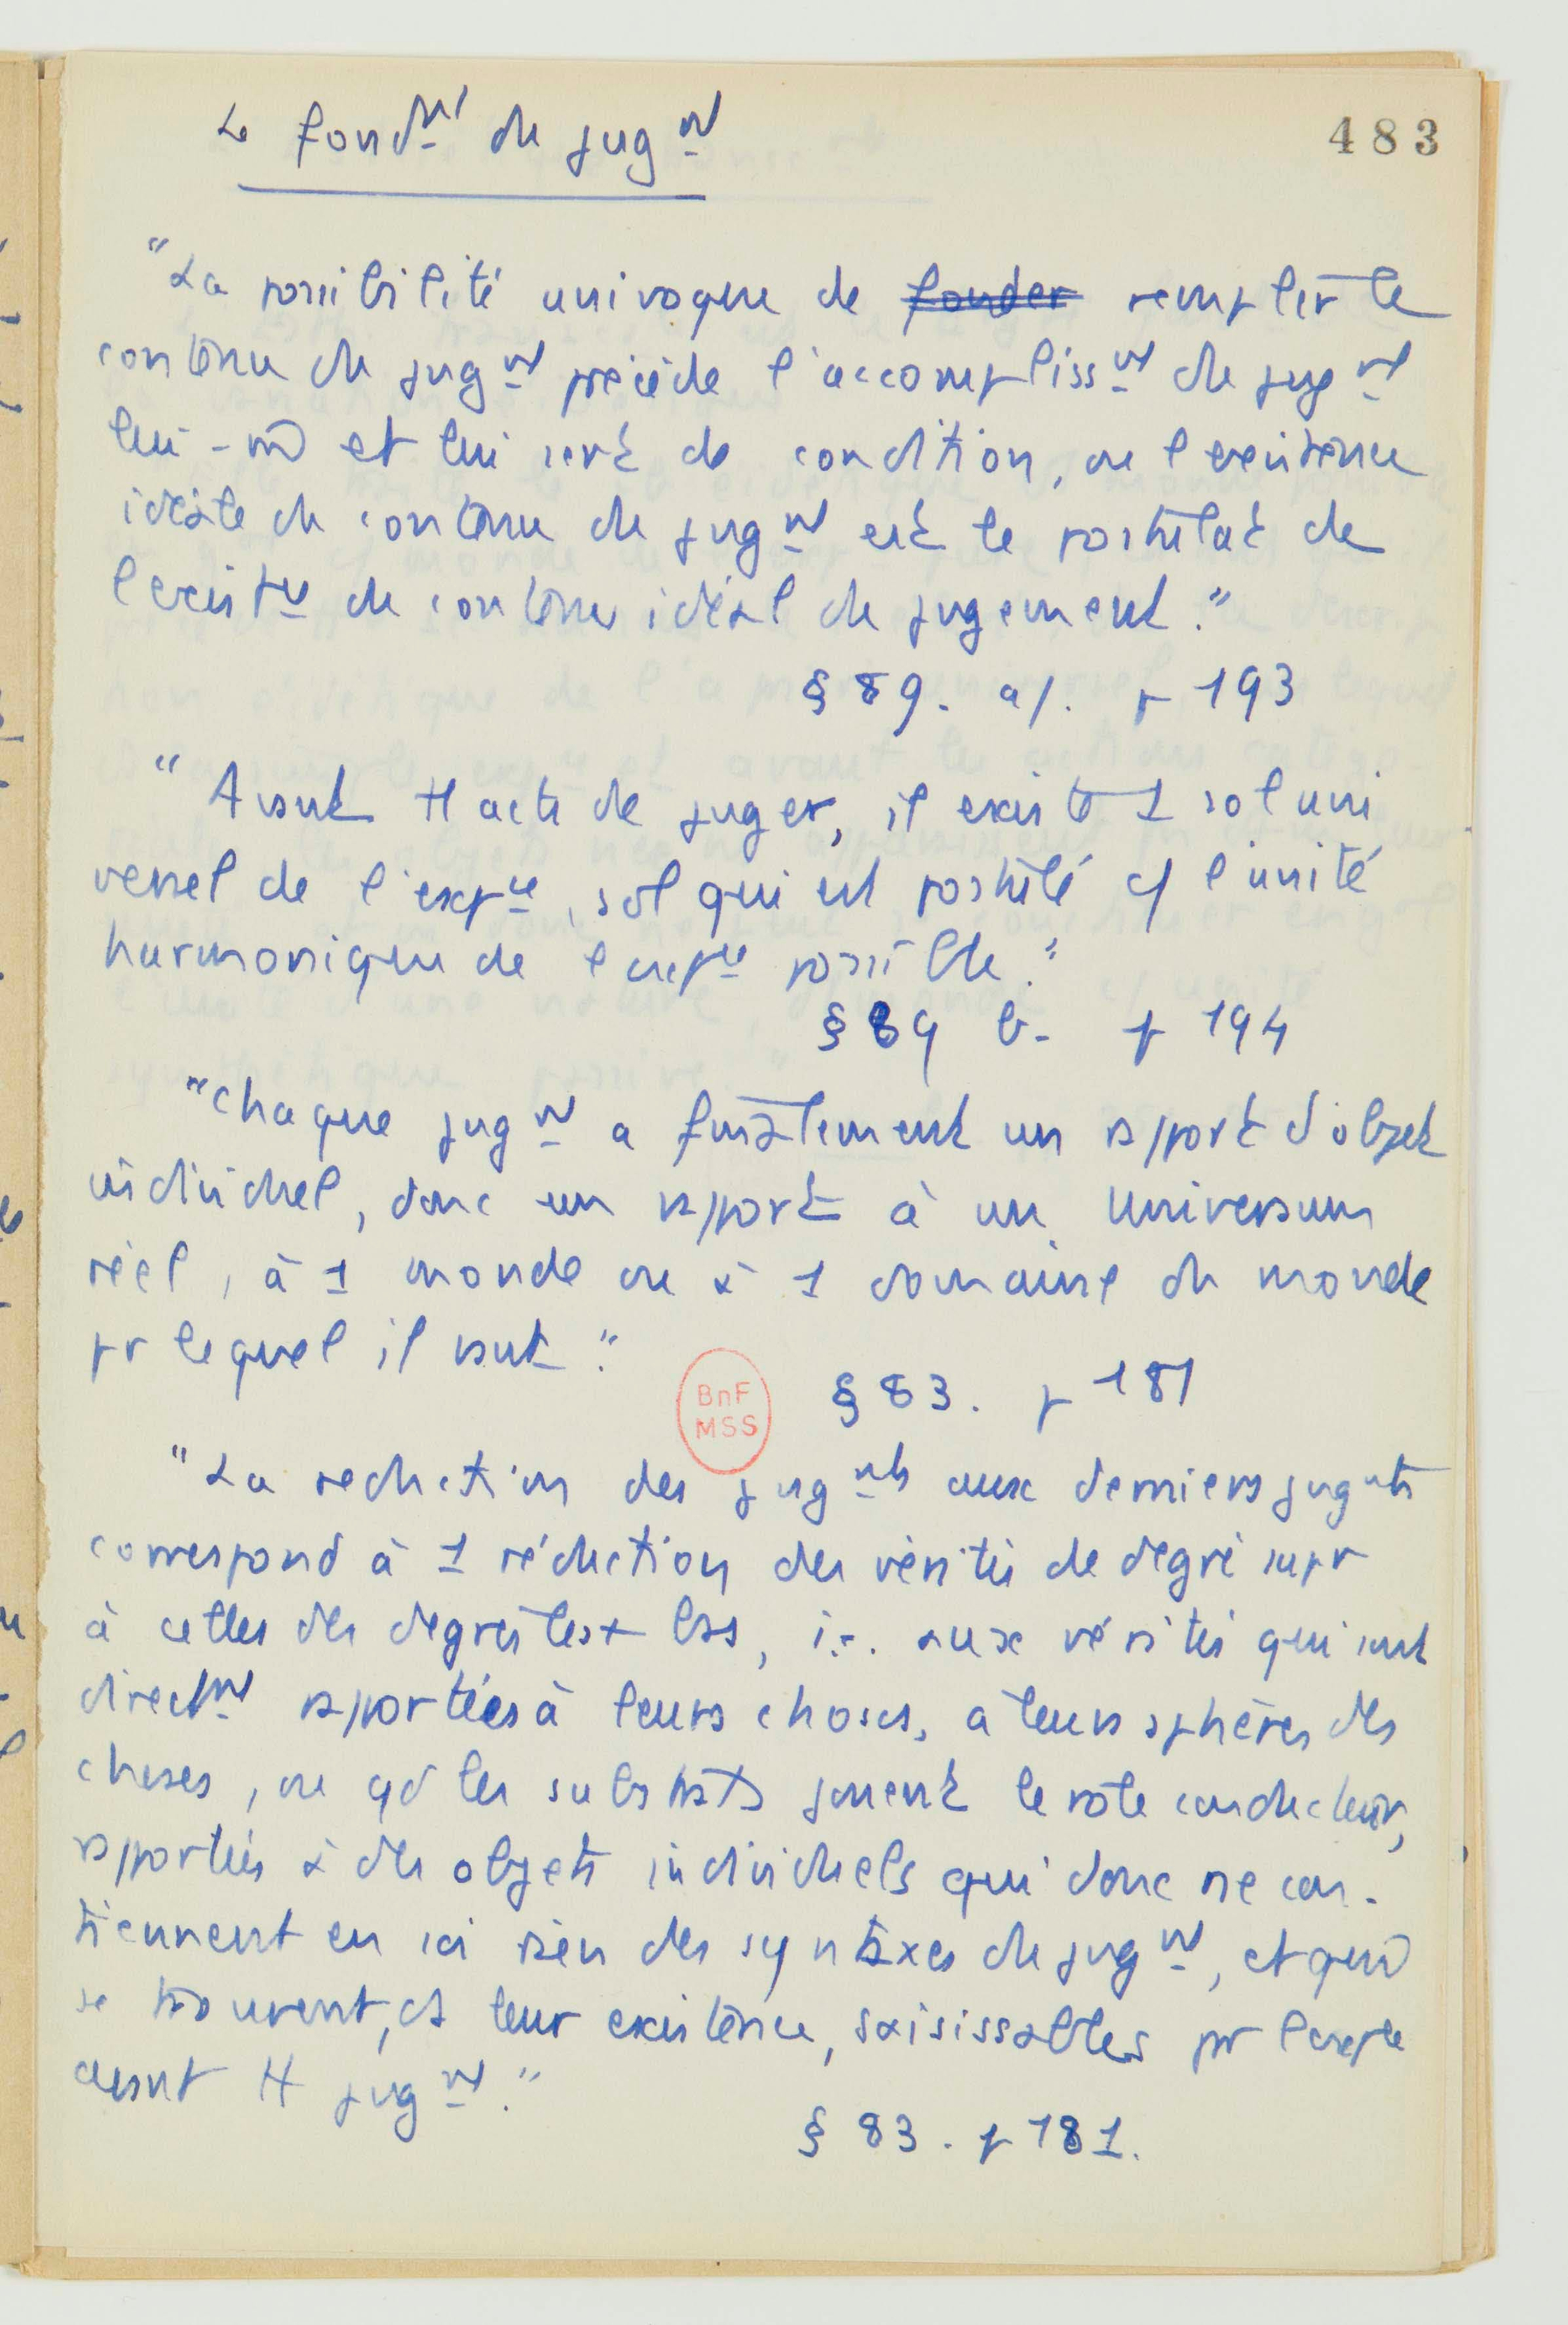 483
Le fondmt du jugmt
"La possibilité univoque de fonder remplir le
contenu du jugmt précède l'accomplissmt du jugmt
lui-m̄ et lui sert de condition, ou l'existence
idéale du contenu du jugmt est le postulat de
l'existce du contenu idéal du jugement."
§ 89. a/. p 193
"Avant tt acte de juger, il existe 1 sol uni
versel de l'expce, sol qui est postulé c/ l'unité
harmonique de l'expce possible."
§ 89 b. p 194
"Chaque jugmt a finalement un rapport d'objet
individuel, donc un rapport à un Universum
réel, à 1 monde ou à 1 domaine du monde
pr lequel il vaut."
BnF
MSS
§ 83. p 181
"La reduction des jugmts aux derniers jugmts
correspond à 1 réduction des vérités de degré supr
à celles des degrés les + bas, i.e. aux vérités qui sont
directmt rapportées à leurs choses, à leurs sphères des
choses, ou qd les substrats jouent le rôle conducteur,
rapportés à des objets individuels qui donc ne con-
tiennent en soi rien des syntaxes du jugmt, et qui
se trouvent, ds leur existence, saisissables pr l'expce
avant tt jugmt."
§ 83. p 181.